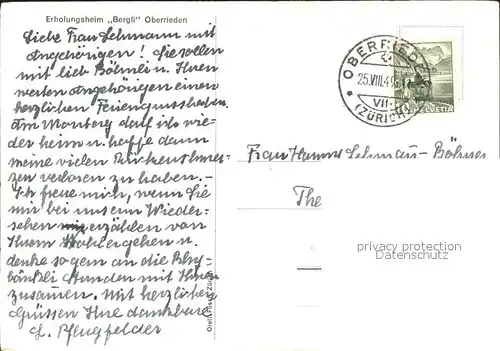 Erholungsheim „Bergli" Oberrieden
Liebe Frau Lehmann mit
Angehörigen! Sie sollen
mit lieb Böhmli u. Ihren
werten Angehörigen einen
herzlichen Feriengruss haben.
Am Montag darf ich wie-
der heim u. hoffe dann
meine vielen Rückenschmer-
zen verloren zu haben. -
Ich freue mich, wenn Sie
mir bei unserm Wieder-
sehen erzählen von
Ihrem Wohlergehen u.
denke so gern an die
bänkli Stunden mit Ihnen
zusammen. Mit herzlichen
Grüssen Ihre dankbare
L. Pflugfelder
OBERRIEDEN
25.VIII.4
VII-
(ZÜRICH)
HELVETIA
Frau Hanny Lehmann-Böhmer
The
privacy protection
AnsichtskartenVersand.com